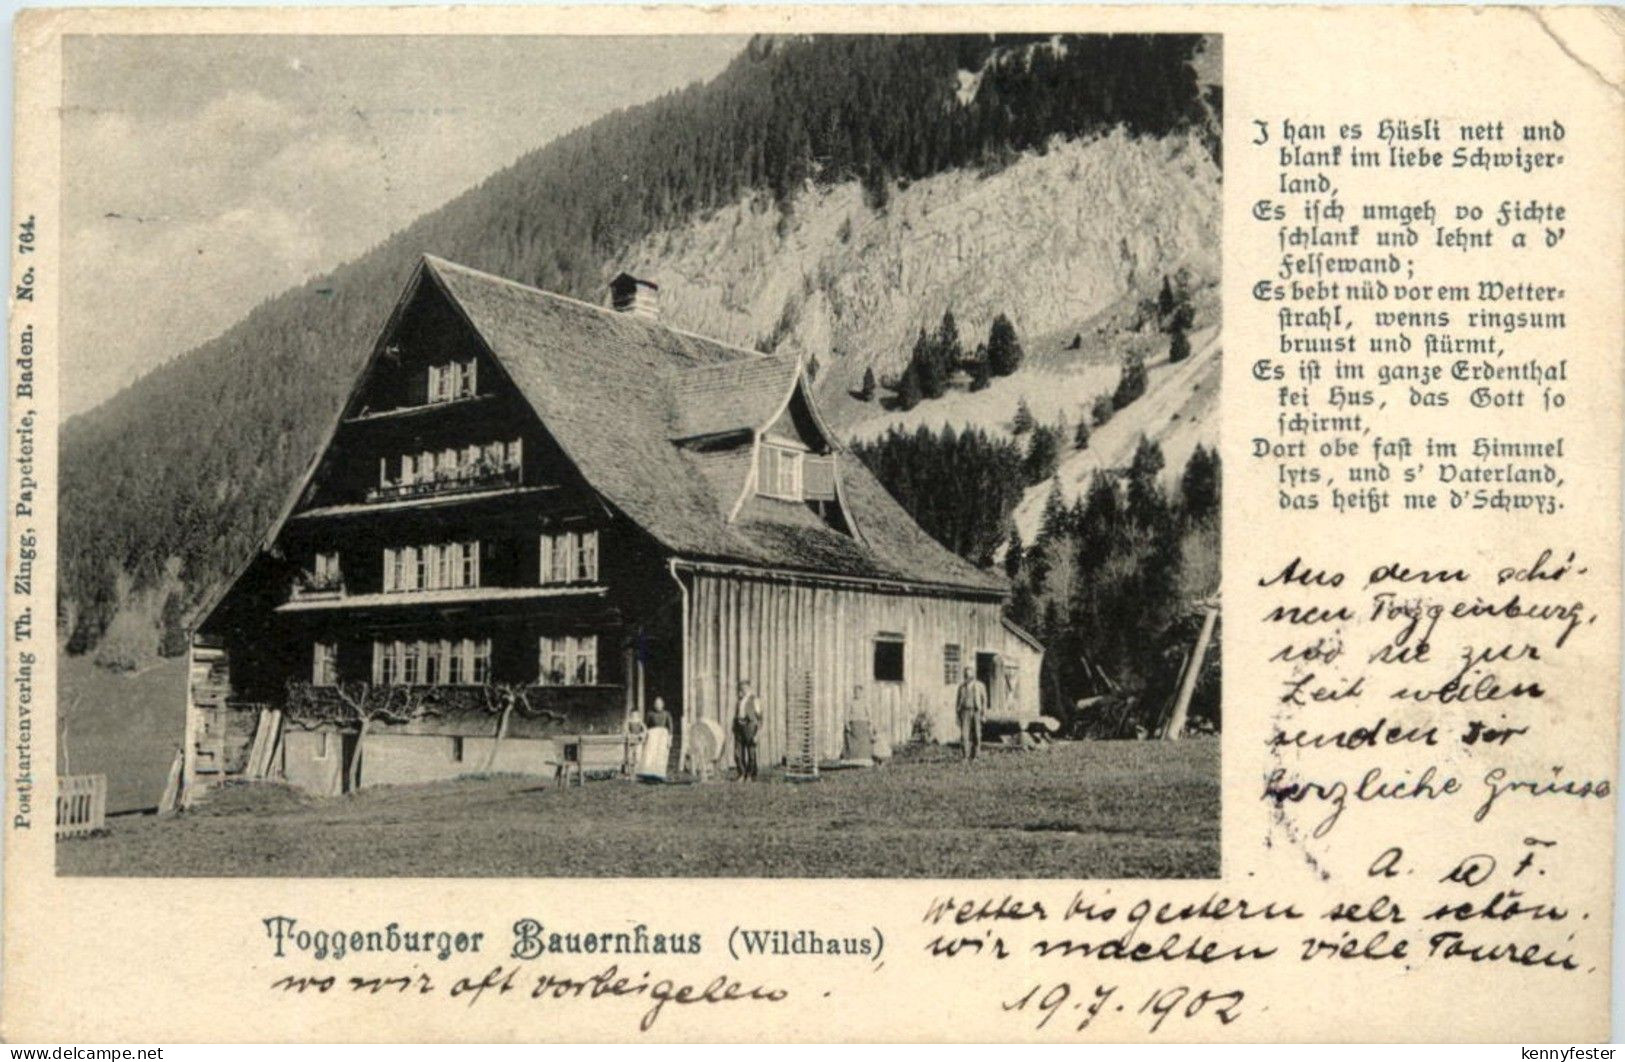 Postkartenverlag Th. Zingg, Papeterie, Baden. No. 764.
J han es Hüsli nett und
blank im liebe Schwizer-
land,
Es isch umgeh vo Fichte
schlank und lehnt a d'
Felsewand;
Es bebt nüd vor em Wetter-
strahl, wenns ringsum
bruust und stürmt,
Es ist im ganze Erdenthal
kei Hus, das Gott so
schirmt,
Dort obe fast im Himmel
lyts, und s' Vaterland,
das heißt me d'Schwyz.
Aus dem schö-
nen Toggenburg,
wo sie zur
Zeit weilen
senden Dir
herzliche Grüsse
A. F.
Toggenburger Bauernhaus (Wildhaus),
wo wir oft vorbeigehen.
Wetter bis gestern sehr schön.
wir machten viele Touren.
19.7.1902
www.delcampe.net
kennyfester